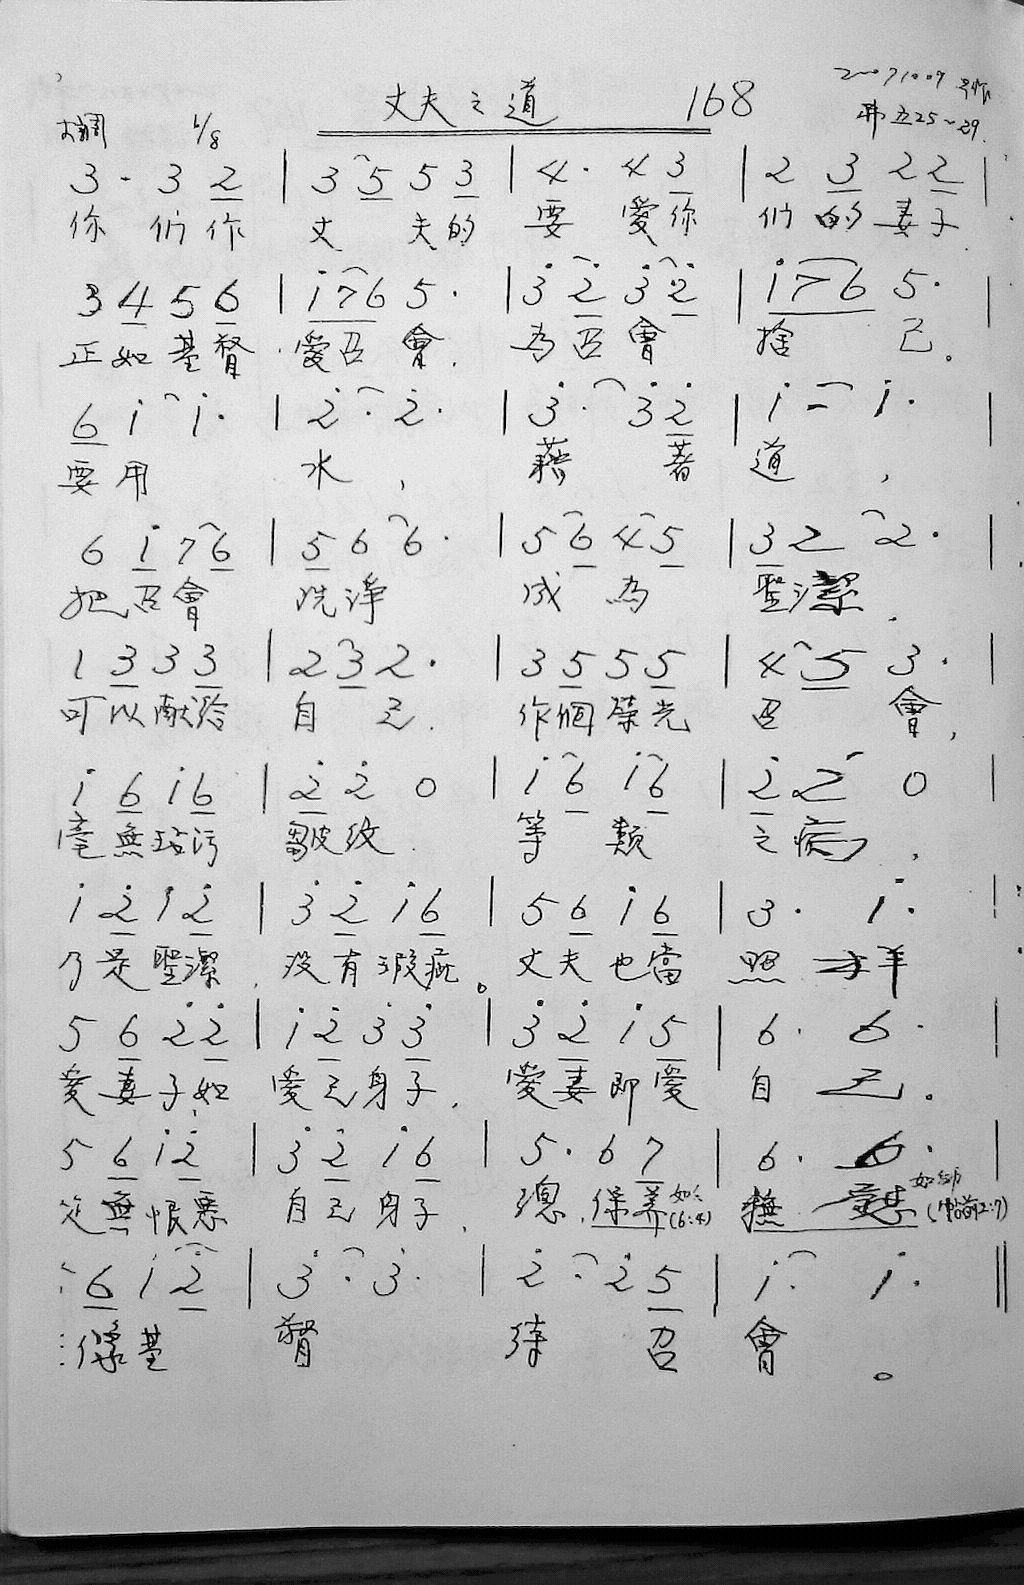 丈夫之道 168 20071009
6/8 弗五25~29
3 · 3 2 | 3 5 5 3 | 4 · 4 3 | 2 3 2 2 |
你們作丈夫的要愛你們的妻子
3 4 5 6 | i 7 6 5 · | 3̇ 2̇ 3̇ 2̇ | i 7 6 5 ·
正如基督愛召會.為召會捨己。
6 i i · | 2̇ · 2̇ · | 3̇ · 3̇ 2̇ | i – i · |
要用水,藉著道,
6 i 7 6 | 5 6 6 · | 5 6 4 5 | 3 2 2 · |
把召會洗淨成為聖潔.
1 3 3 3 | 2 3 2 · | 3 5 5 5 | 4 5 3 · |
可以獻給自己.作個榮光召會,
i 6 i 6 | 2̇ 2̇ 0 | i 6 i 6 | 2̇ 2̇ 0 |
毫無玷污皺紋.等類之病,
i 2̇ i 2̇ | 3̇ 2̇ i 6 | 5 6 i 6 | 3 · i ·
乃是聖潔.沒有瑕疵。丈夫也當照樣
5 6 2̇ 2̇ | i 2̇ 3̇ 3̇ | 3̇ 2̇ i 5 | 6 · 6 · |
愛妻子如愛己身子,愛妻即愛自己。
5 6 i 2̇ | 3̇ 2̇ i 6 | 5 · 6 7 | 6 · 6 · |
無恨惡自己身子,總.保養(6:4)撫(帖前2:7)
6 i 2̇ | 3̇ · 3̇ · | 2̇ · 2̇ 5 | i · i · ||
像基督待召會。